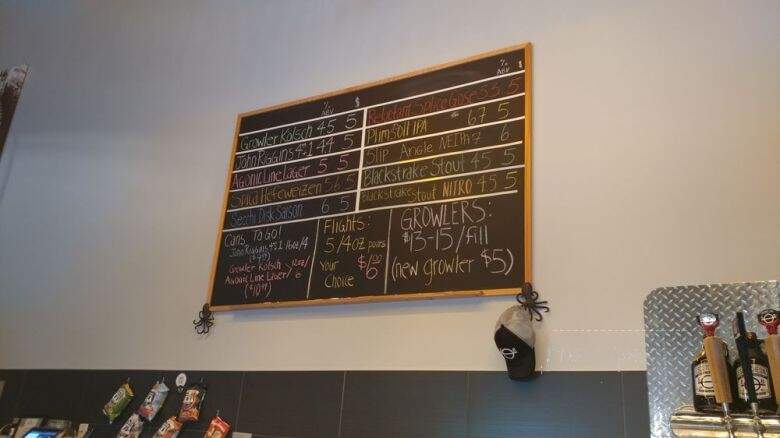 % ABV $
Growler Kölsch 4.5 5
John Riggins 4+1 4.4 5
Agonic Line Lager 5 5
Hefeweizen 5.6 5
Secchi Disk Saison 6 5
% ABV $
Reluctant Splice Gose 5.3 5
Plimsoll IPA 6.7 5
Slip Angle NEIPA 7 6
Blackstrake Stout 4.5 5
Blackstrake Stout NITRO 4.5 5
Cans, To Go!
John Riggins 4+1 16oz/4
Growler Kölsch
Agonic Line Lager
12oz/6
($10.99)
Flights:
5/4oz pours
Your
Choice
$6.00
GROWLERS:
$13-15/fill
(new growler $5)